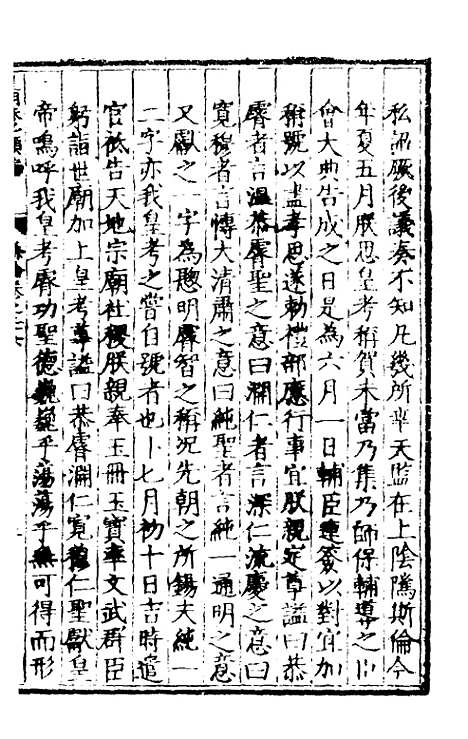 私詔厥後議奏不知凡幾所幸天監在上陰隲斯倫今
年夏五月朕思皇考稱賀未當乃集乃師保輔導之臣
會大典告成之日是為六月一日輔臣連簽以對宜加
稱號以盡孝思遂勅禮部應行事宜朕親定尊謚曰恭
睿者言温恭睿聖之意曰淵仁者言深仁流慶之意曰
寛穆者言博大清肅之意曰純聖者言純一通明之意
又獻之一字為聰明睿智之稱况先朝之所錫夫純一
二字亦我皇考之嘗自號者也卜七月初十日吉時遣
官祗告天地宗廟社稷朕親奉玉冊玉寳率文武群臣
躬詣世廟加上皇考尊謚曰恭睿淵仁寛穆仁聖獻皇
帝嗚呼我皇考睿功聖德巍巍乎蕩蕩乎無可得而形